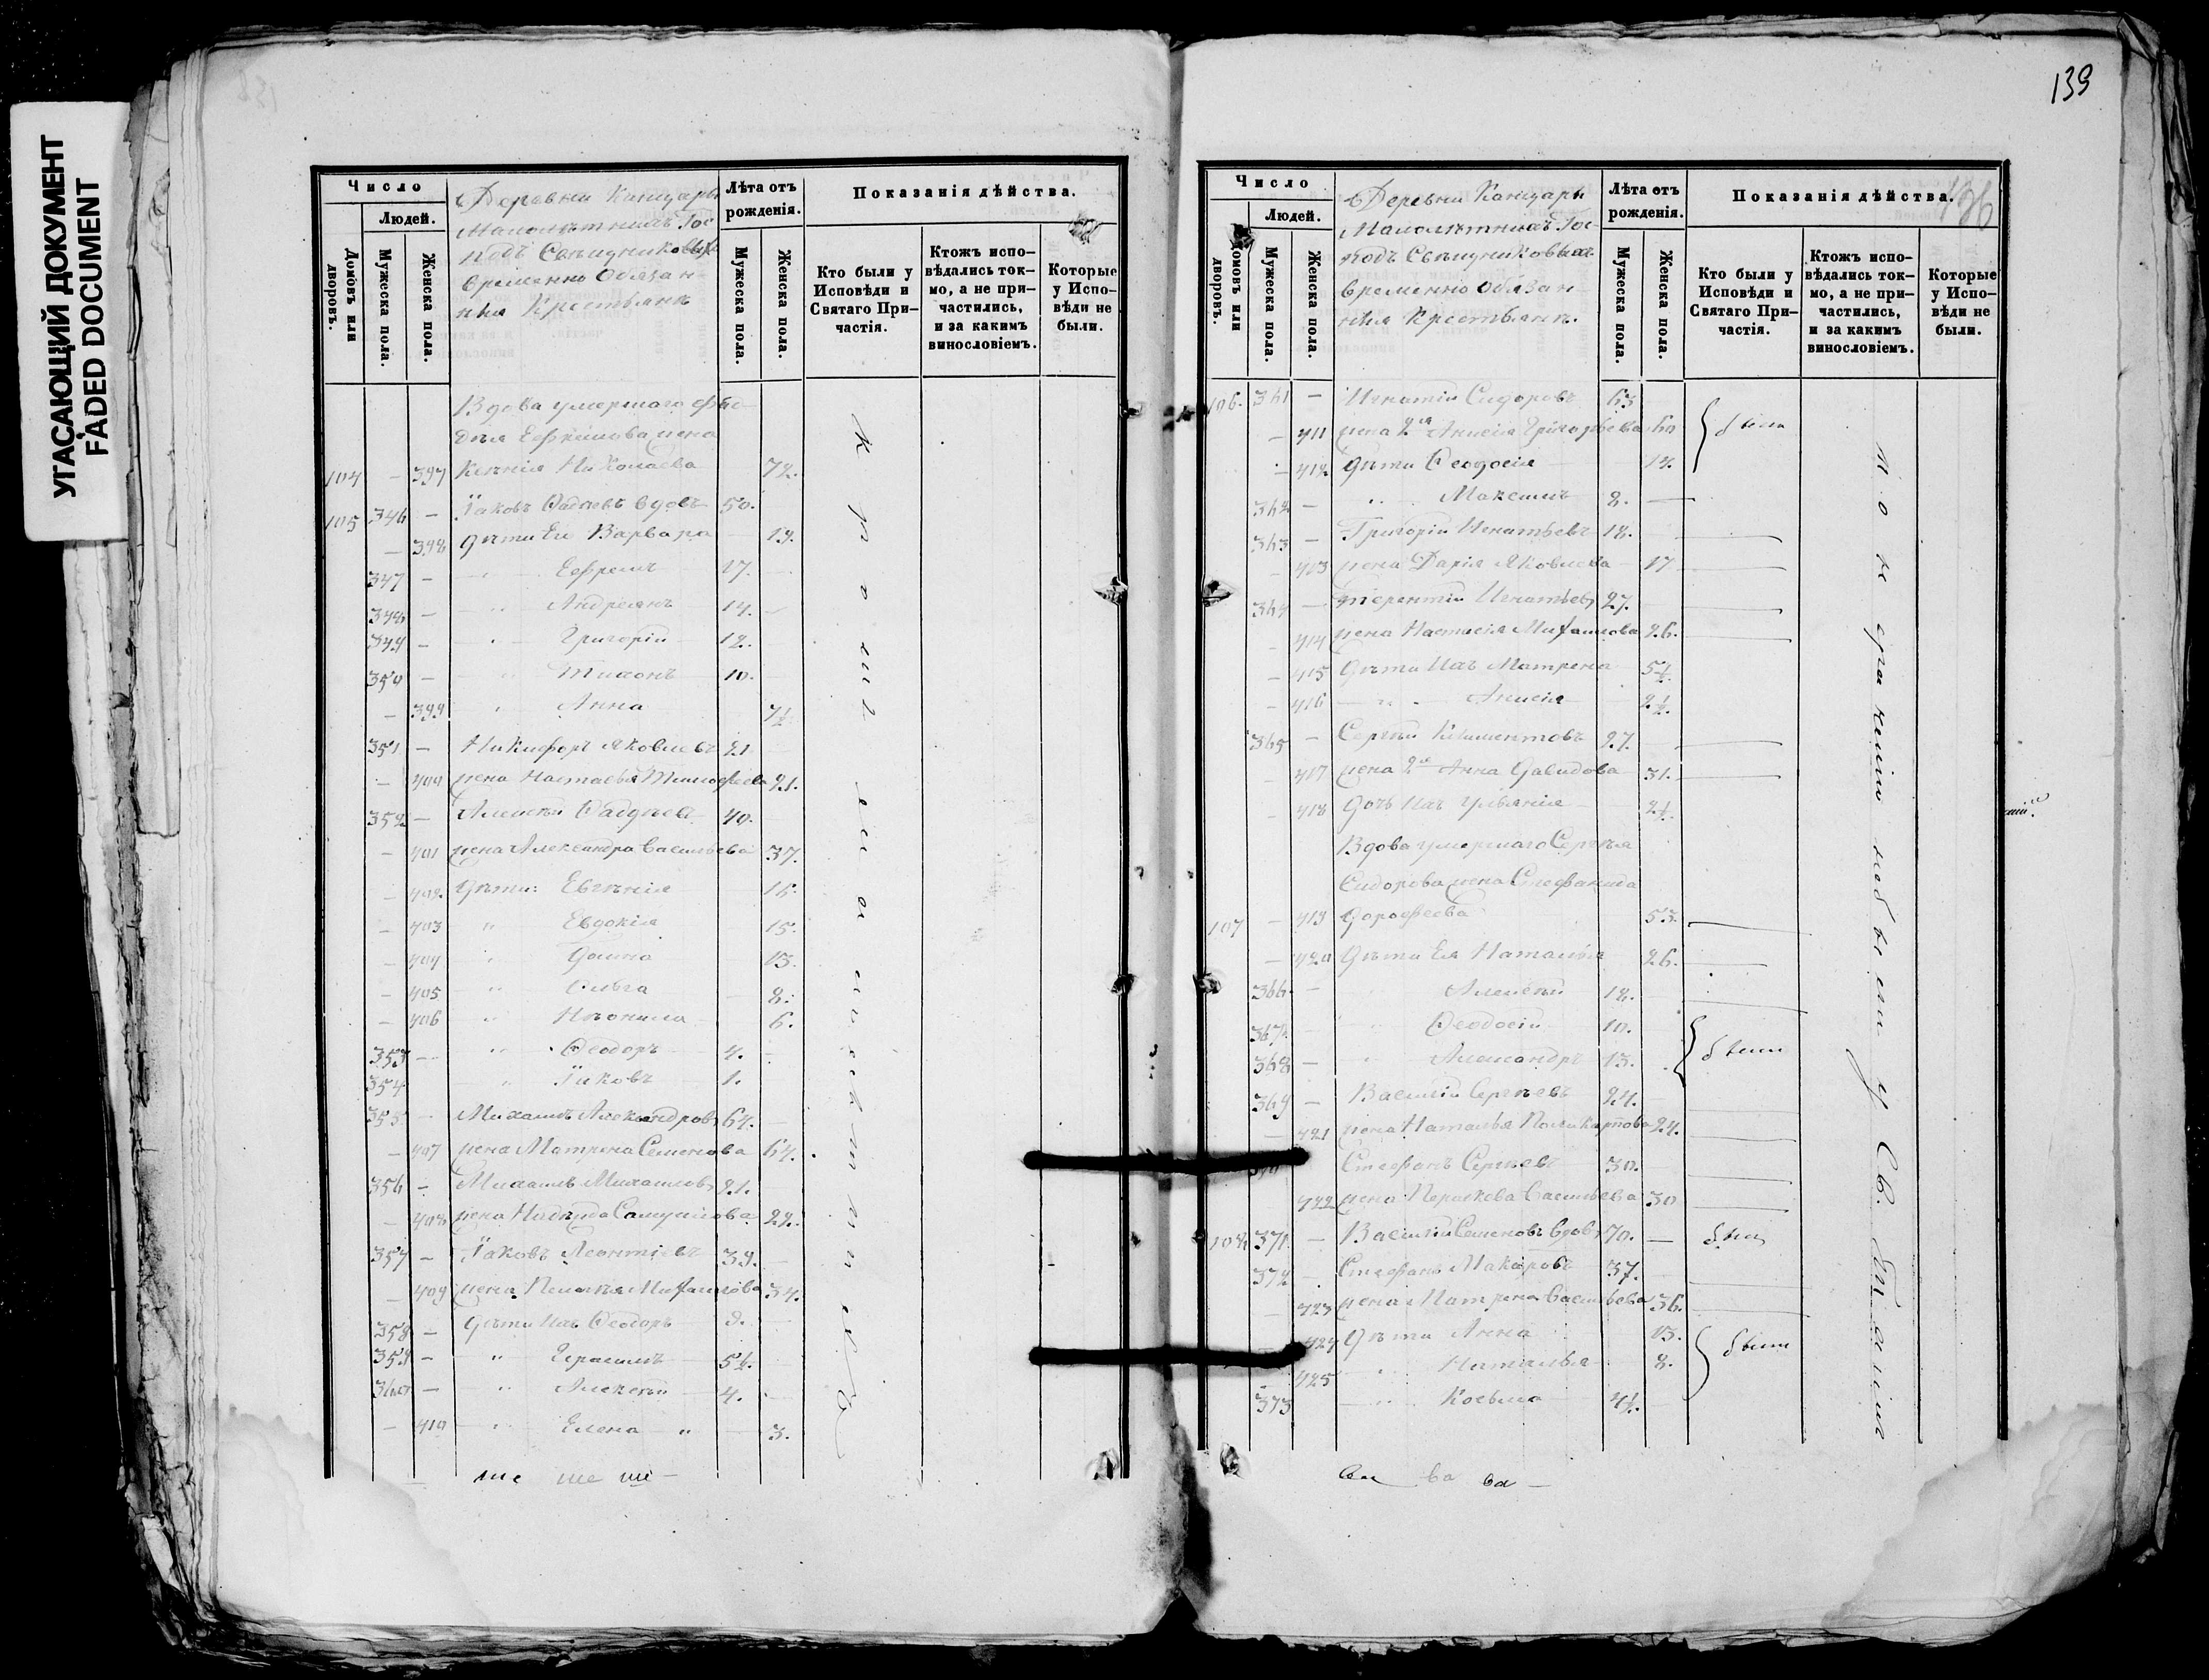 УГАСАЮЩИЙ ДОКУМЕНТ
FADED DOCUMENT
Число
Людей.
Домовъ или дворовъ.
Мужеска пола.
Женска пола.
Деревни Канцары
Малолѣтнихъ Гос-
подъ Свѣчниковыхъ
временно Обязан-
ныя Крестьяне
Лѣта отъ рожденія.
Мужеска пола.
Женска пола.
Показанія дѣйства.
Кто были у Исповѣди и Святаго Причастія.
Ктожъ испо-
вѣдались ток-
мо, а не при-
частились,
и за какимъ
винословіемъ.
Которые у Исповѣди не были.
Вдова умершаго Фад-
дѣя Ефимова жена
104 – 397 Ксенія Николаева 72.
105 346 – Іаковъ Фаддеевъ вдовъ 50.
– 398 дѣти Ея Варвара 19.
347 – " Ефремъ 17.
348 – " Андреянъ 14.
349 – " Григорій 12.
350 – " Тихонъ 10.
– 399 " Анна 7½
351 – Никифоръ Яковлевъ 21
– 400 жена Настасья Тимофеева 21.
352 – Алексѣй Фаддѣевъ 40.
– 401 жена Александра Васильева 37.
– 402. Дѣти: Евгенія 16.
– 403 " Евдокія 15.
– 404 " Домна 13.
– 405 " Ольга 8.
– 406 " Неонила 6.
353 – " Феодоръ 4.
354 " Іаковъ 1.
355 – Михаилъ Александровъ 64.
– 407 жена Матрена Семенова 64.
356 – Михаилъ Михаиловъ 21.
– 408 жена Надежда Самуилова 22.
357 – Іаковъ Леонтіевъ 39.
– 409 жена Пелагея Михаилова 34.
358 – Дѣти Ихъ Феодоръ 9.
359 – " Герасимъ 5½.
360 – " Алексѣй 4.
– 410 " Елена " 3.
139
Число
Людей.
Домовъ или дворовъ.
Мужеска пола.
Женска пола.
Деревни Канцары
Малолѣтнихъ Гос-
подъ Свѣчниковыхъ
временно Обязан-
ныя Крестьяне.
Лѣта отъ рожденія.
Мужеска пола.
Женска пола.
Показанія дѣйства.
Кто были у Исповѣди и Святаго Причастія.
Ктожъ испо-
вѣдались ток-
мо, а не при-
частились,
и за какимъ
винословіемъ.
Которые у Исповѣди не были.
106. 361 – Игнатій Сидоровъ 63
– 411 жена 2я Анисія Григорьева 60 были
– 412 дѣти Феодосія 14.
362 – " Максимъ 8.
363 – Григорій Игнатьевъ 18.
– 413 жена Дарія Яковлева 17
364 – Терентій Игнатьевъ 27.
– 414 жена Настасія Михаилова 26.
– 415 Дѣти Ихъ Матрена 5½.
– 416 " Анисія 2½.
365 – Сергѣй Климентовъ 27.
– 417 жена 2я Анна Давидова 31.
– 418 Дочь Ихъ Ульянія 2½.
Вдова умершаго Сергѣя
Сидорова жена Стефанида
107 – 419 Дорофеева 53.
– 420 Дѣти Ея Наталья 26.
366. – Алексѣй 18.
367. – " Феодосій 10.
368 – " Александръ 13. были
369 – Василій Сергѣевъ 24.
– 421 жена Наталья Поликарпова 24.
370 Стефанъ Сергѣевъ 30.
422 жена Параскева Васильева 30
108 371. – Василій Семеновъ вдовъ 70. – былъ
372 – Стефанъ Макаровъ 37.
– 423 жена Матрена Васильева 36.
424 Дѣти Анна 13. были
425 " Наталья 8.
373 – " Косьма 4½.
по нераченію небыли у Св. Причастія